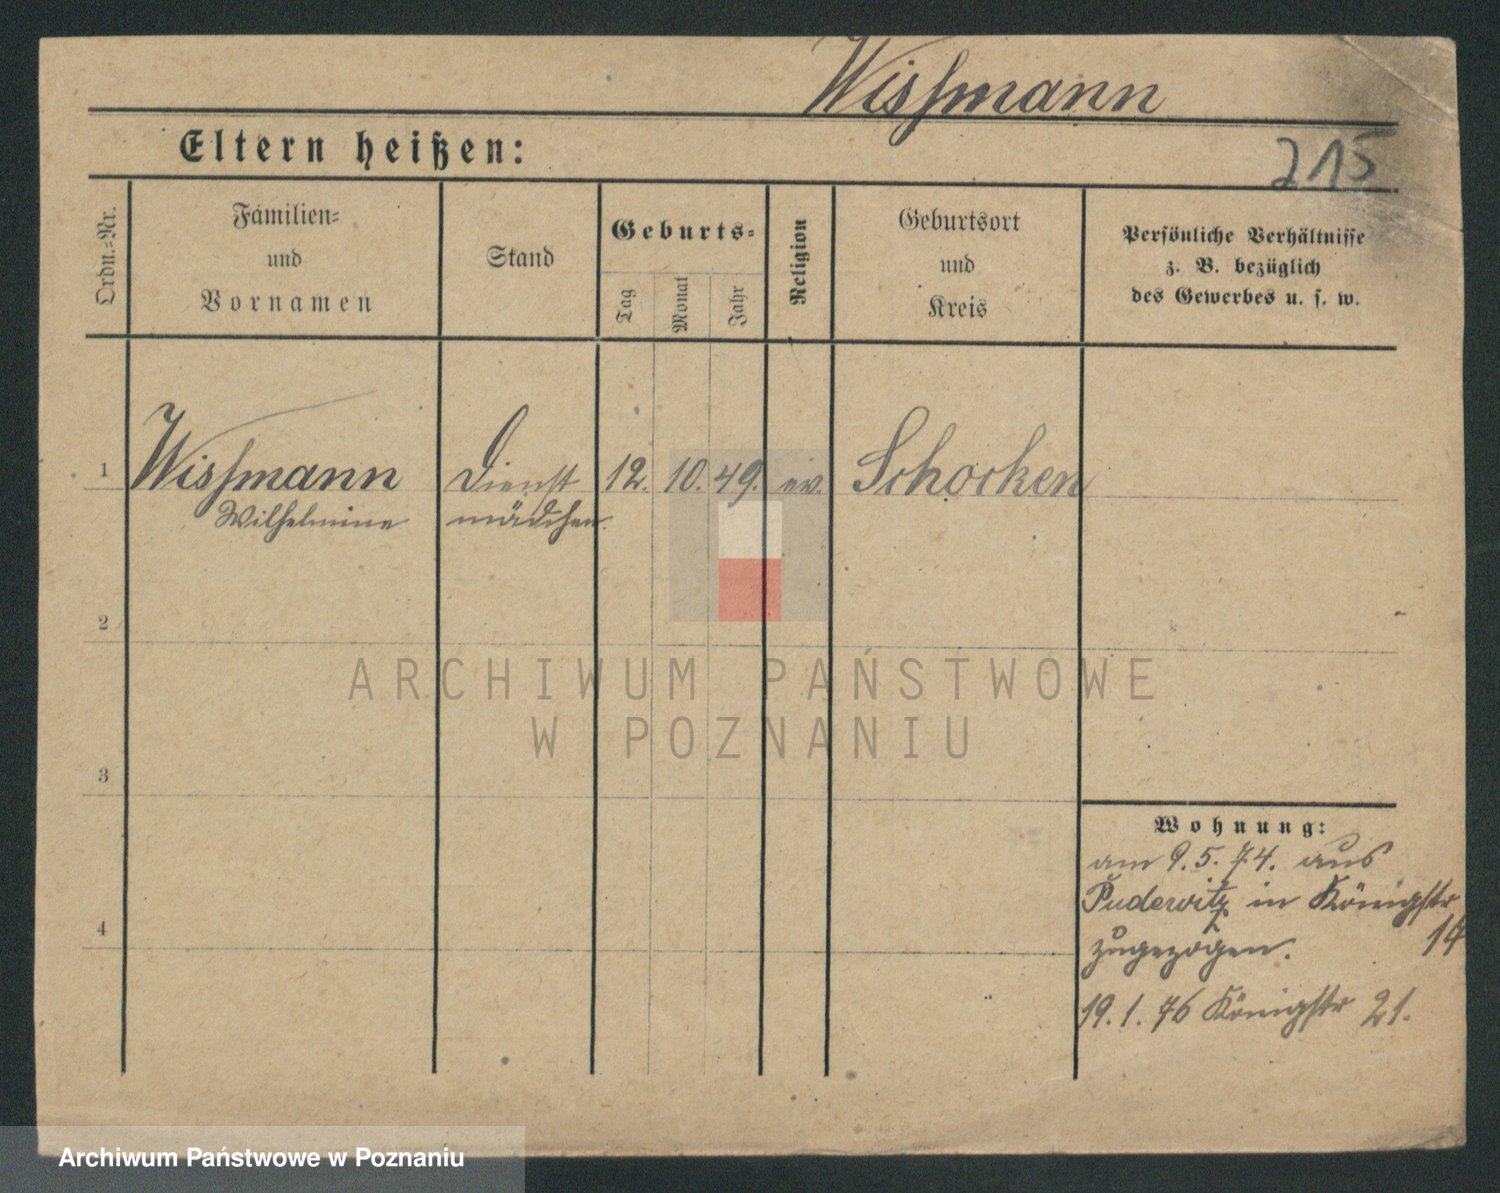 Wissmann
Eltern heißen:
215
Ordn.-Nr.
Familien-
und
Vornamen
Stand
Geburts-
Tag
Monat
Jahr
Religion
Geburtsort
und
Kreis
Persönliche Verhältnisse
z. B. bezüglich
des Gewerbes u. s. w.
1
Wissmann
Wilhelmine
Dienst
mädchen.
12.
10.
49.
ev.
Schocken
2
3
4
Wohnung:
am 9.5.74. aus
Pudewitz in Königstr
14
zugezogen.
19.1.76 Königstr 21.
ARCHIWUM PAŃSTWOWE
W POZNANIU
Archiwum Państwowe w Poznaniu